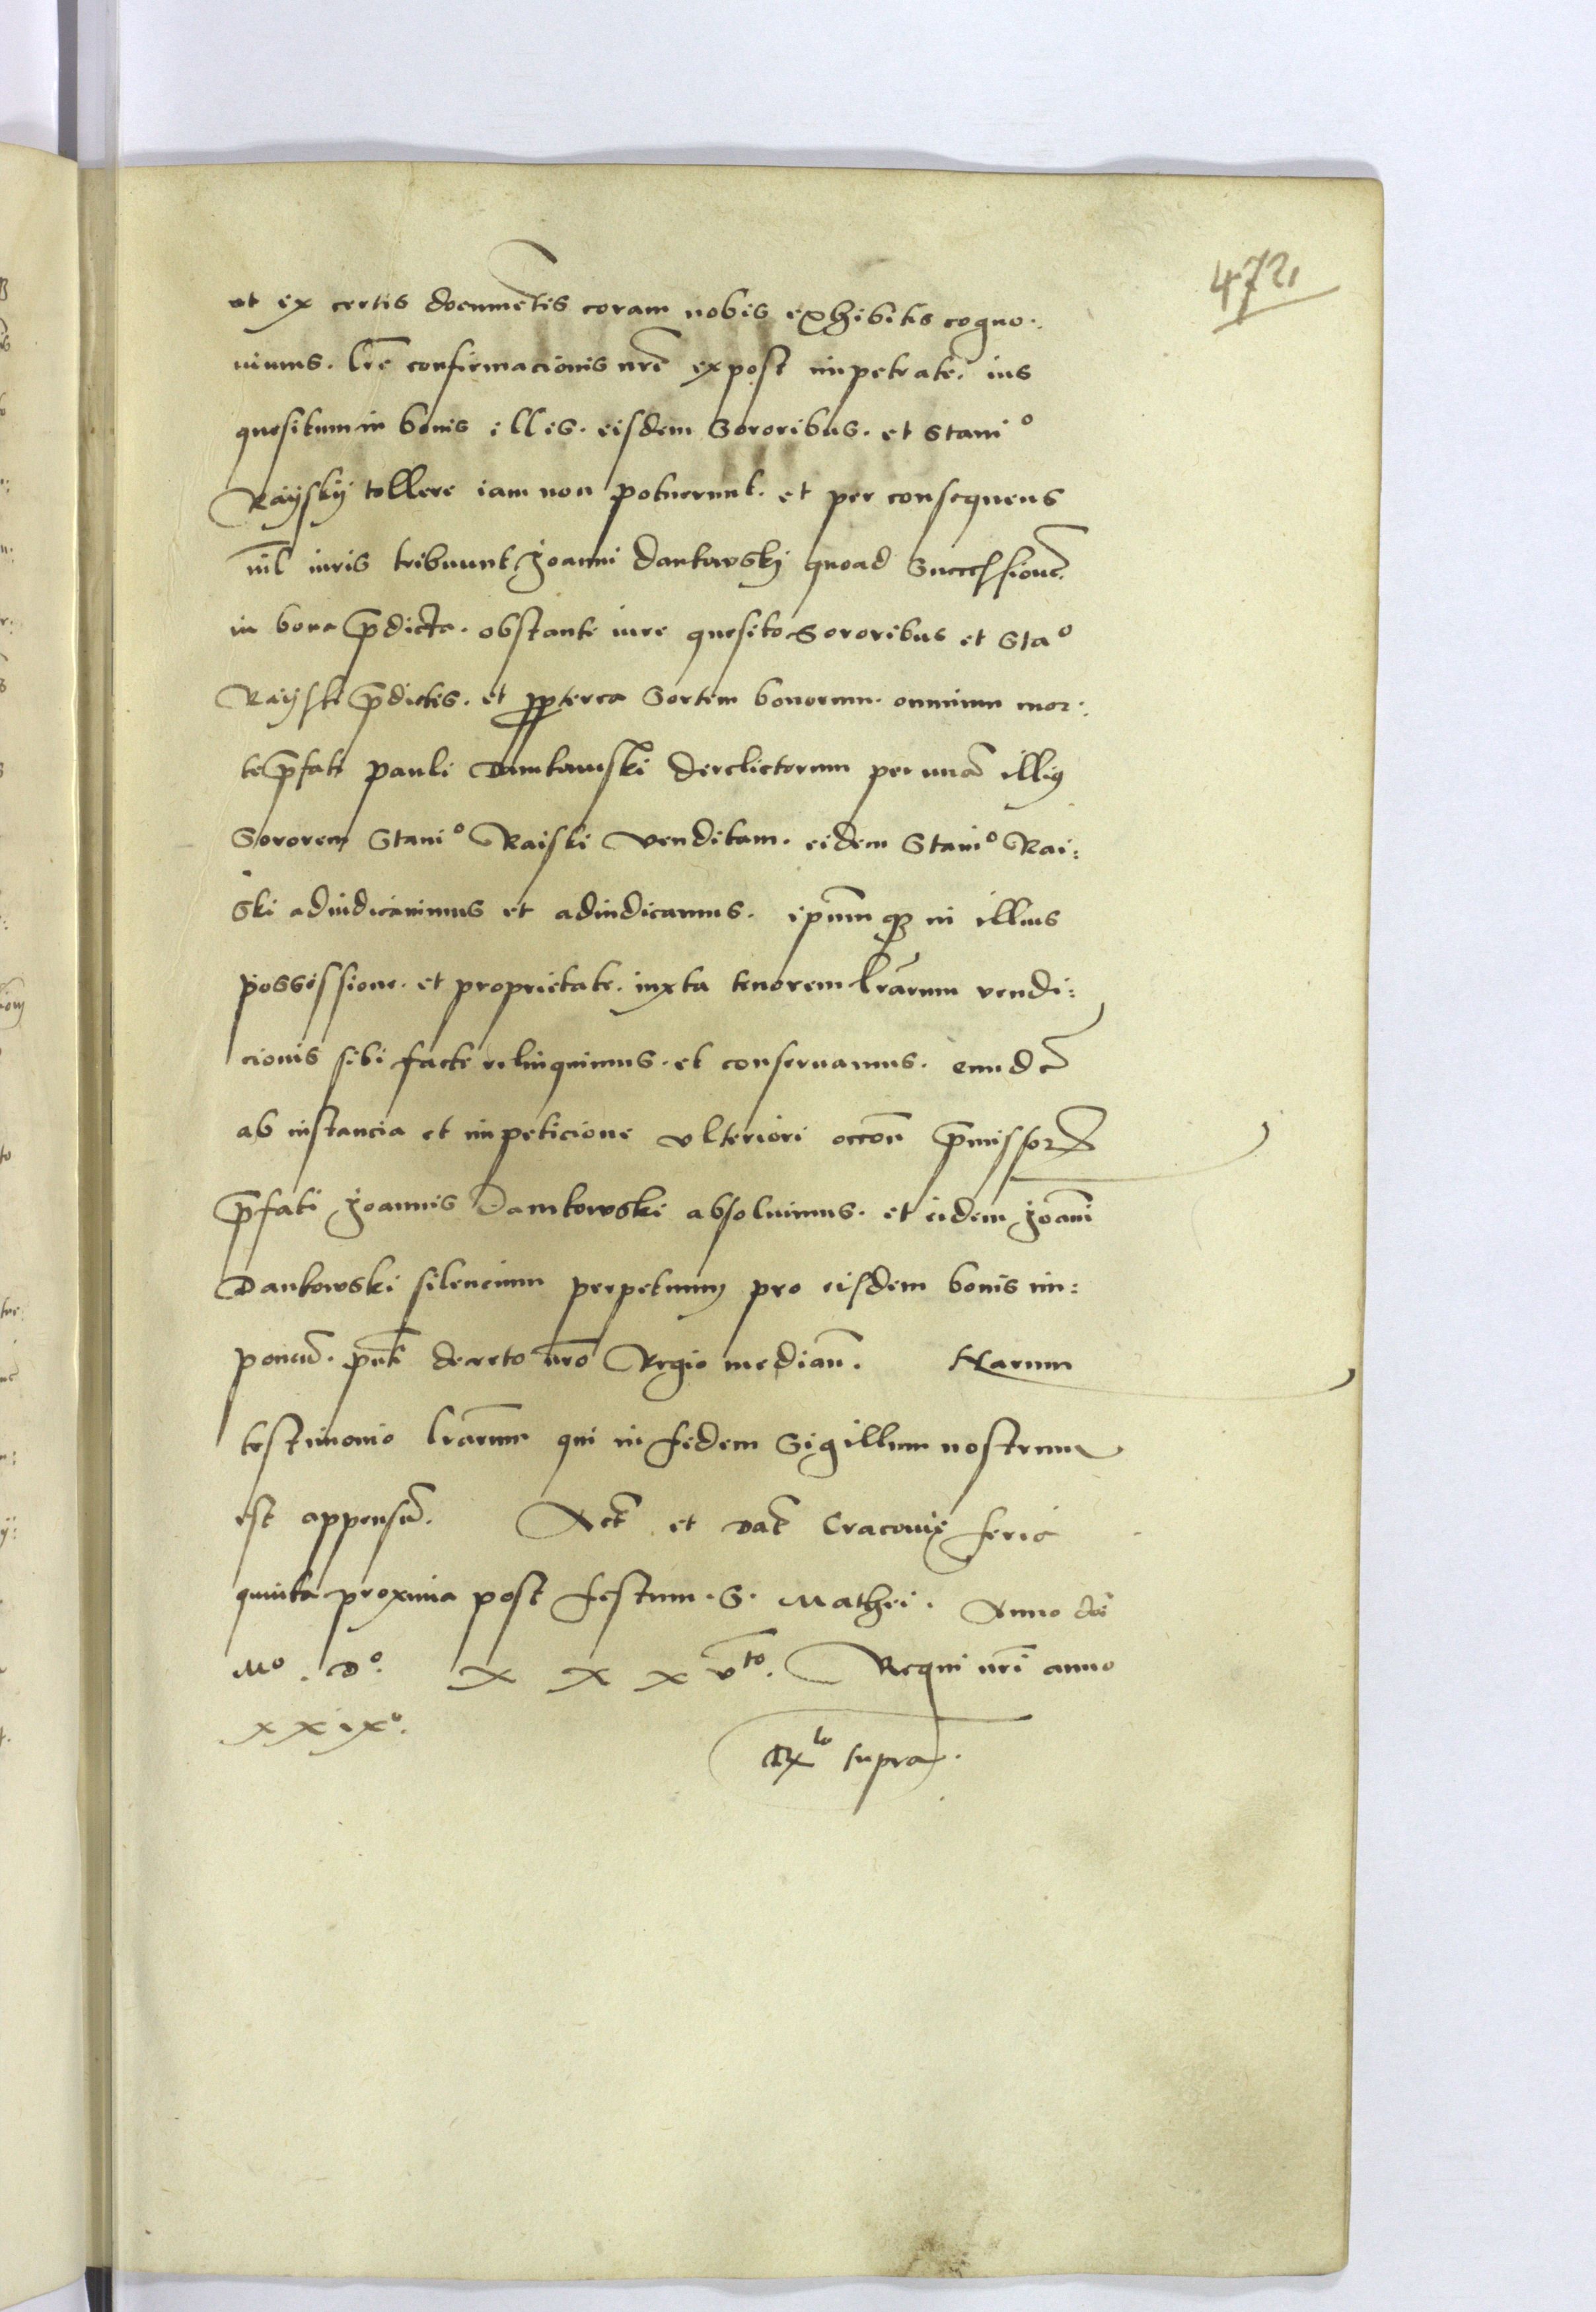 472
ut ex certis documẽtis coram nobis exhibitis cogno:
uimus. lr̃e confirmacionis nr̃e expost impetrate. ius
quesitum in bonis illis. eisdem Sororibus. et Staniº
Raÿskÿ tollere iam non potuerunt. et per consequens
nil̃ iuris tribuunt Joanni Dankowskj quoad Successionẽ
in bona p̃dicta. obstante iure quesito Sororibus et Staº
Raÿski p̃dictis. et propterea Sortem bonorum. omnium mor:
te p̃fati Pauli Dankowski derelictorum per unã illiꝰ
Sororem Staniº Raiski venditam. eidem Staniº Rai:
ski adiudicauimus et adiudicamus. ipsum qꝫ in illius
possessione. et proprietate. iuxta tenorem lr̃arum vendi:
cionis sibi facte relinquimus. et conseruamus. eundẽ
ab instancia et impeticione vlteriori occõn p̃missoꝝ
p̃fati Joannis Dankowski absoluimus. et eidem Joañi
Dankowski silencium perpetuum pro eisdem bonis im:
ponim̃. pn̄ti decreto nr̃o Regio median̄. Harum
testimonio lr̃arum qui in fidem Sigillum nostrum
est appensũ. Act̃ et Dat̃ Cracovie feria
quinta proxima post festum. S. Mathei. Anno dñi
Mº. Dº. x x x vto. Regni nr̃i anno
xxixº.
Rto supra.